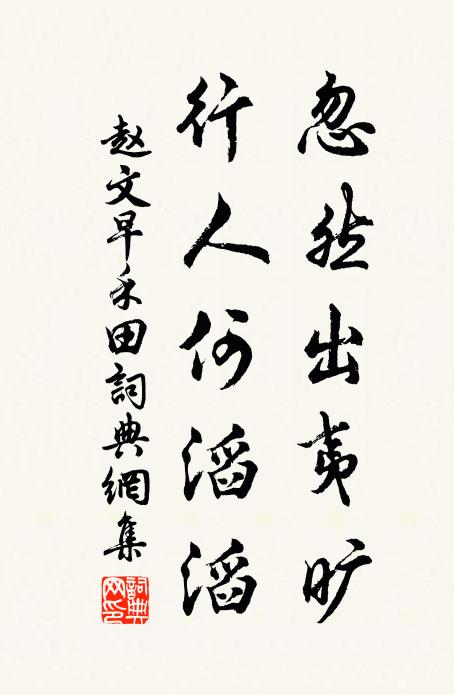 忽然出夷旷
行人何滔滔
赵文早禾田詞典網集
詞典网印